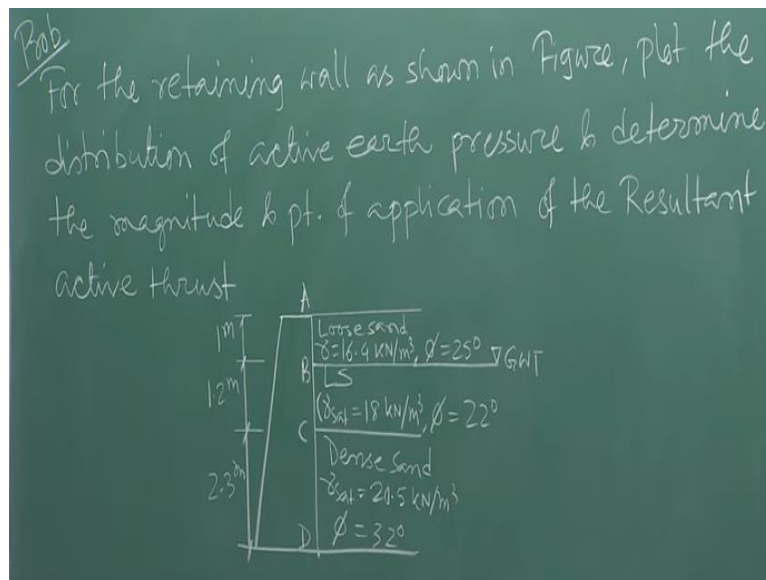 Prob
For the retaining wall as shown in Figure, plot the
distribution of active earth pressure & determine
the magnitude & pt. of application of the Resultant
active thrust
A
1m
Loose sand
γ=16.4 kN/m³, φ=25°
▽GWT
B
LS
1.2m
(γsat=18 kN/m³, φ=22°
C
Dense sand
2.3m
γsat=20.5 kN/m³
D
φ=32°